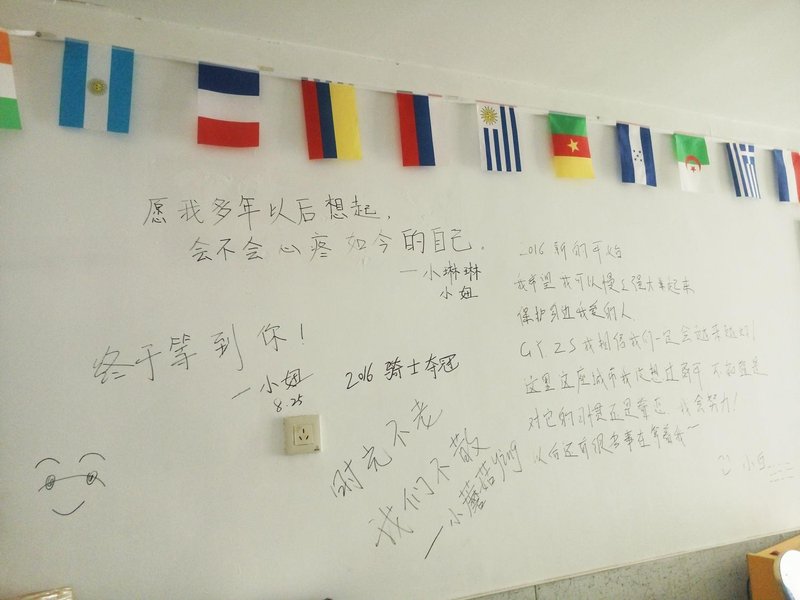 愿我多年以后想起,
会不会心疼如今的自己.
—小琳琳
小妞
终于等到你!
—小妞
8.25
2016 骑士夺冠
时光不老
我们不散
—小蘑菇
2016 新的开始
我希望我可以慢慢强大起来
保护身边我爱的人.
G.Y. ZS 我相信我们一定会越来越好!
这里这座城市我没想过离开 不知道是
对它的习惯还是眷恋 我会努力!
以后还有很多事在等着我~